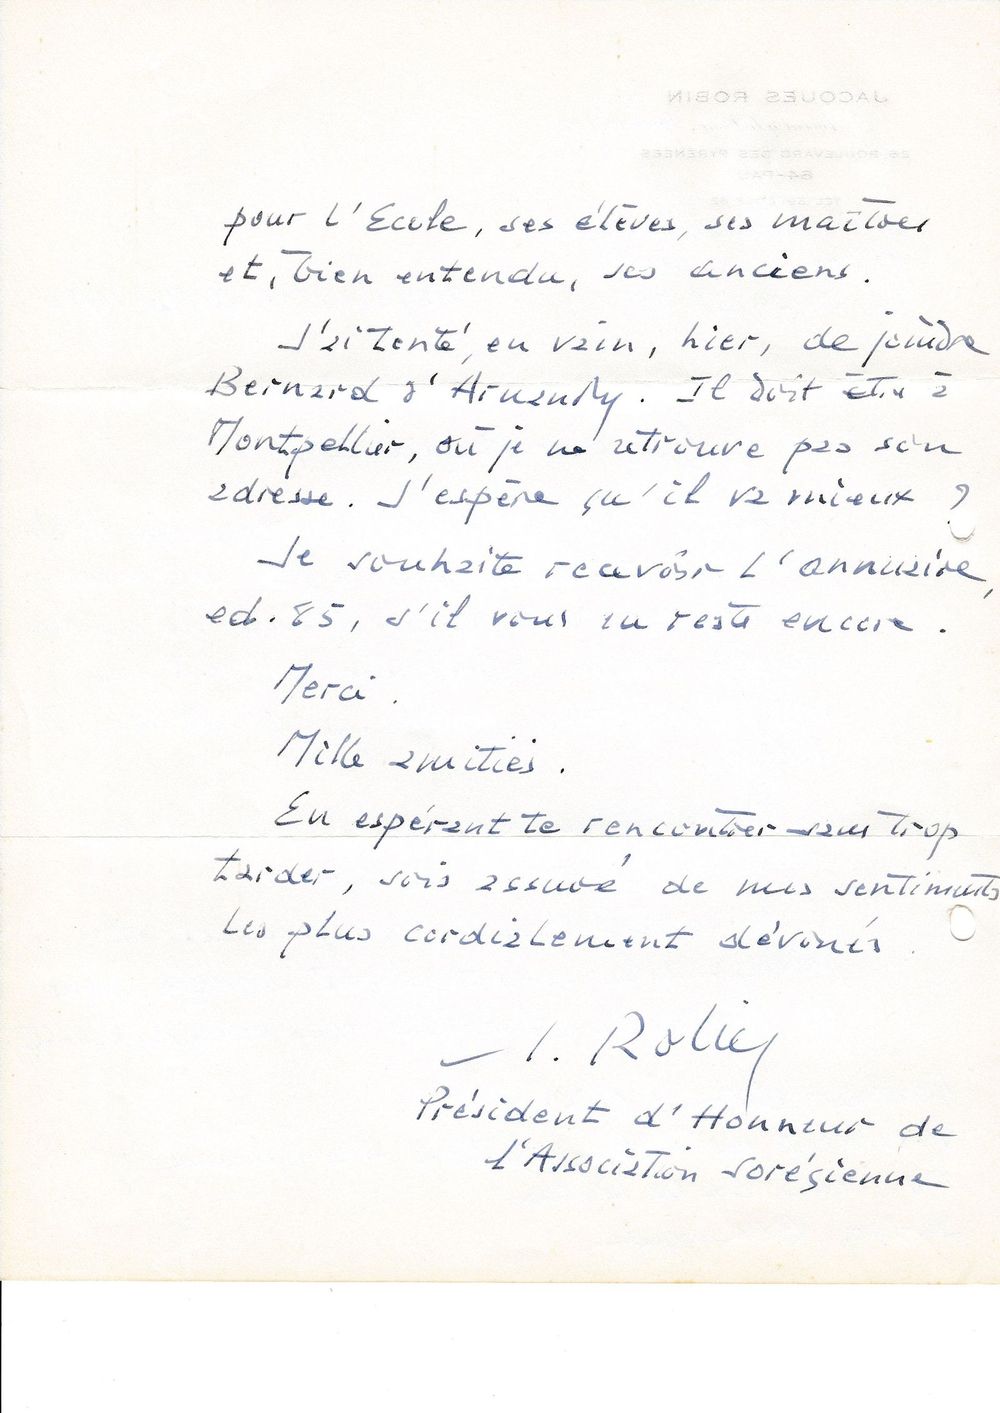 JACQUES ROBIN
26 BOULEVARD DES PYRÉNÉES
64-PAU
pour l'Ecole, ses élèves, ses maîtres
et, bien entendu, ses anciens.
J'ai tenté, en vain, hier, de joindre
Bernard d'Arnaudy. Il doit être à
Montpellier, où je ne retrouve pas son
adresse. J'espère qu'il va mieux ?
Je souhaite recevoir l'annuaire,
ed. 85, s'il vous en reste encore.
Merci.
Mille amitiés.
En espérant te rencontrer sans trop
tarder, sois assuré de mes sentiments
les plus cordialement dévoués.
J. Robin
Président d'Honneur de
l'Association Sorézienne